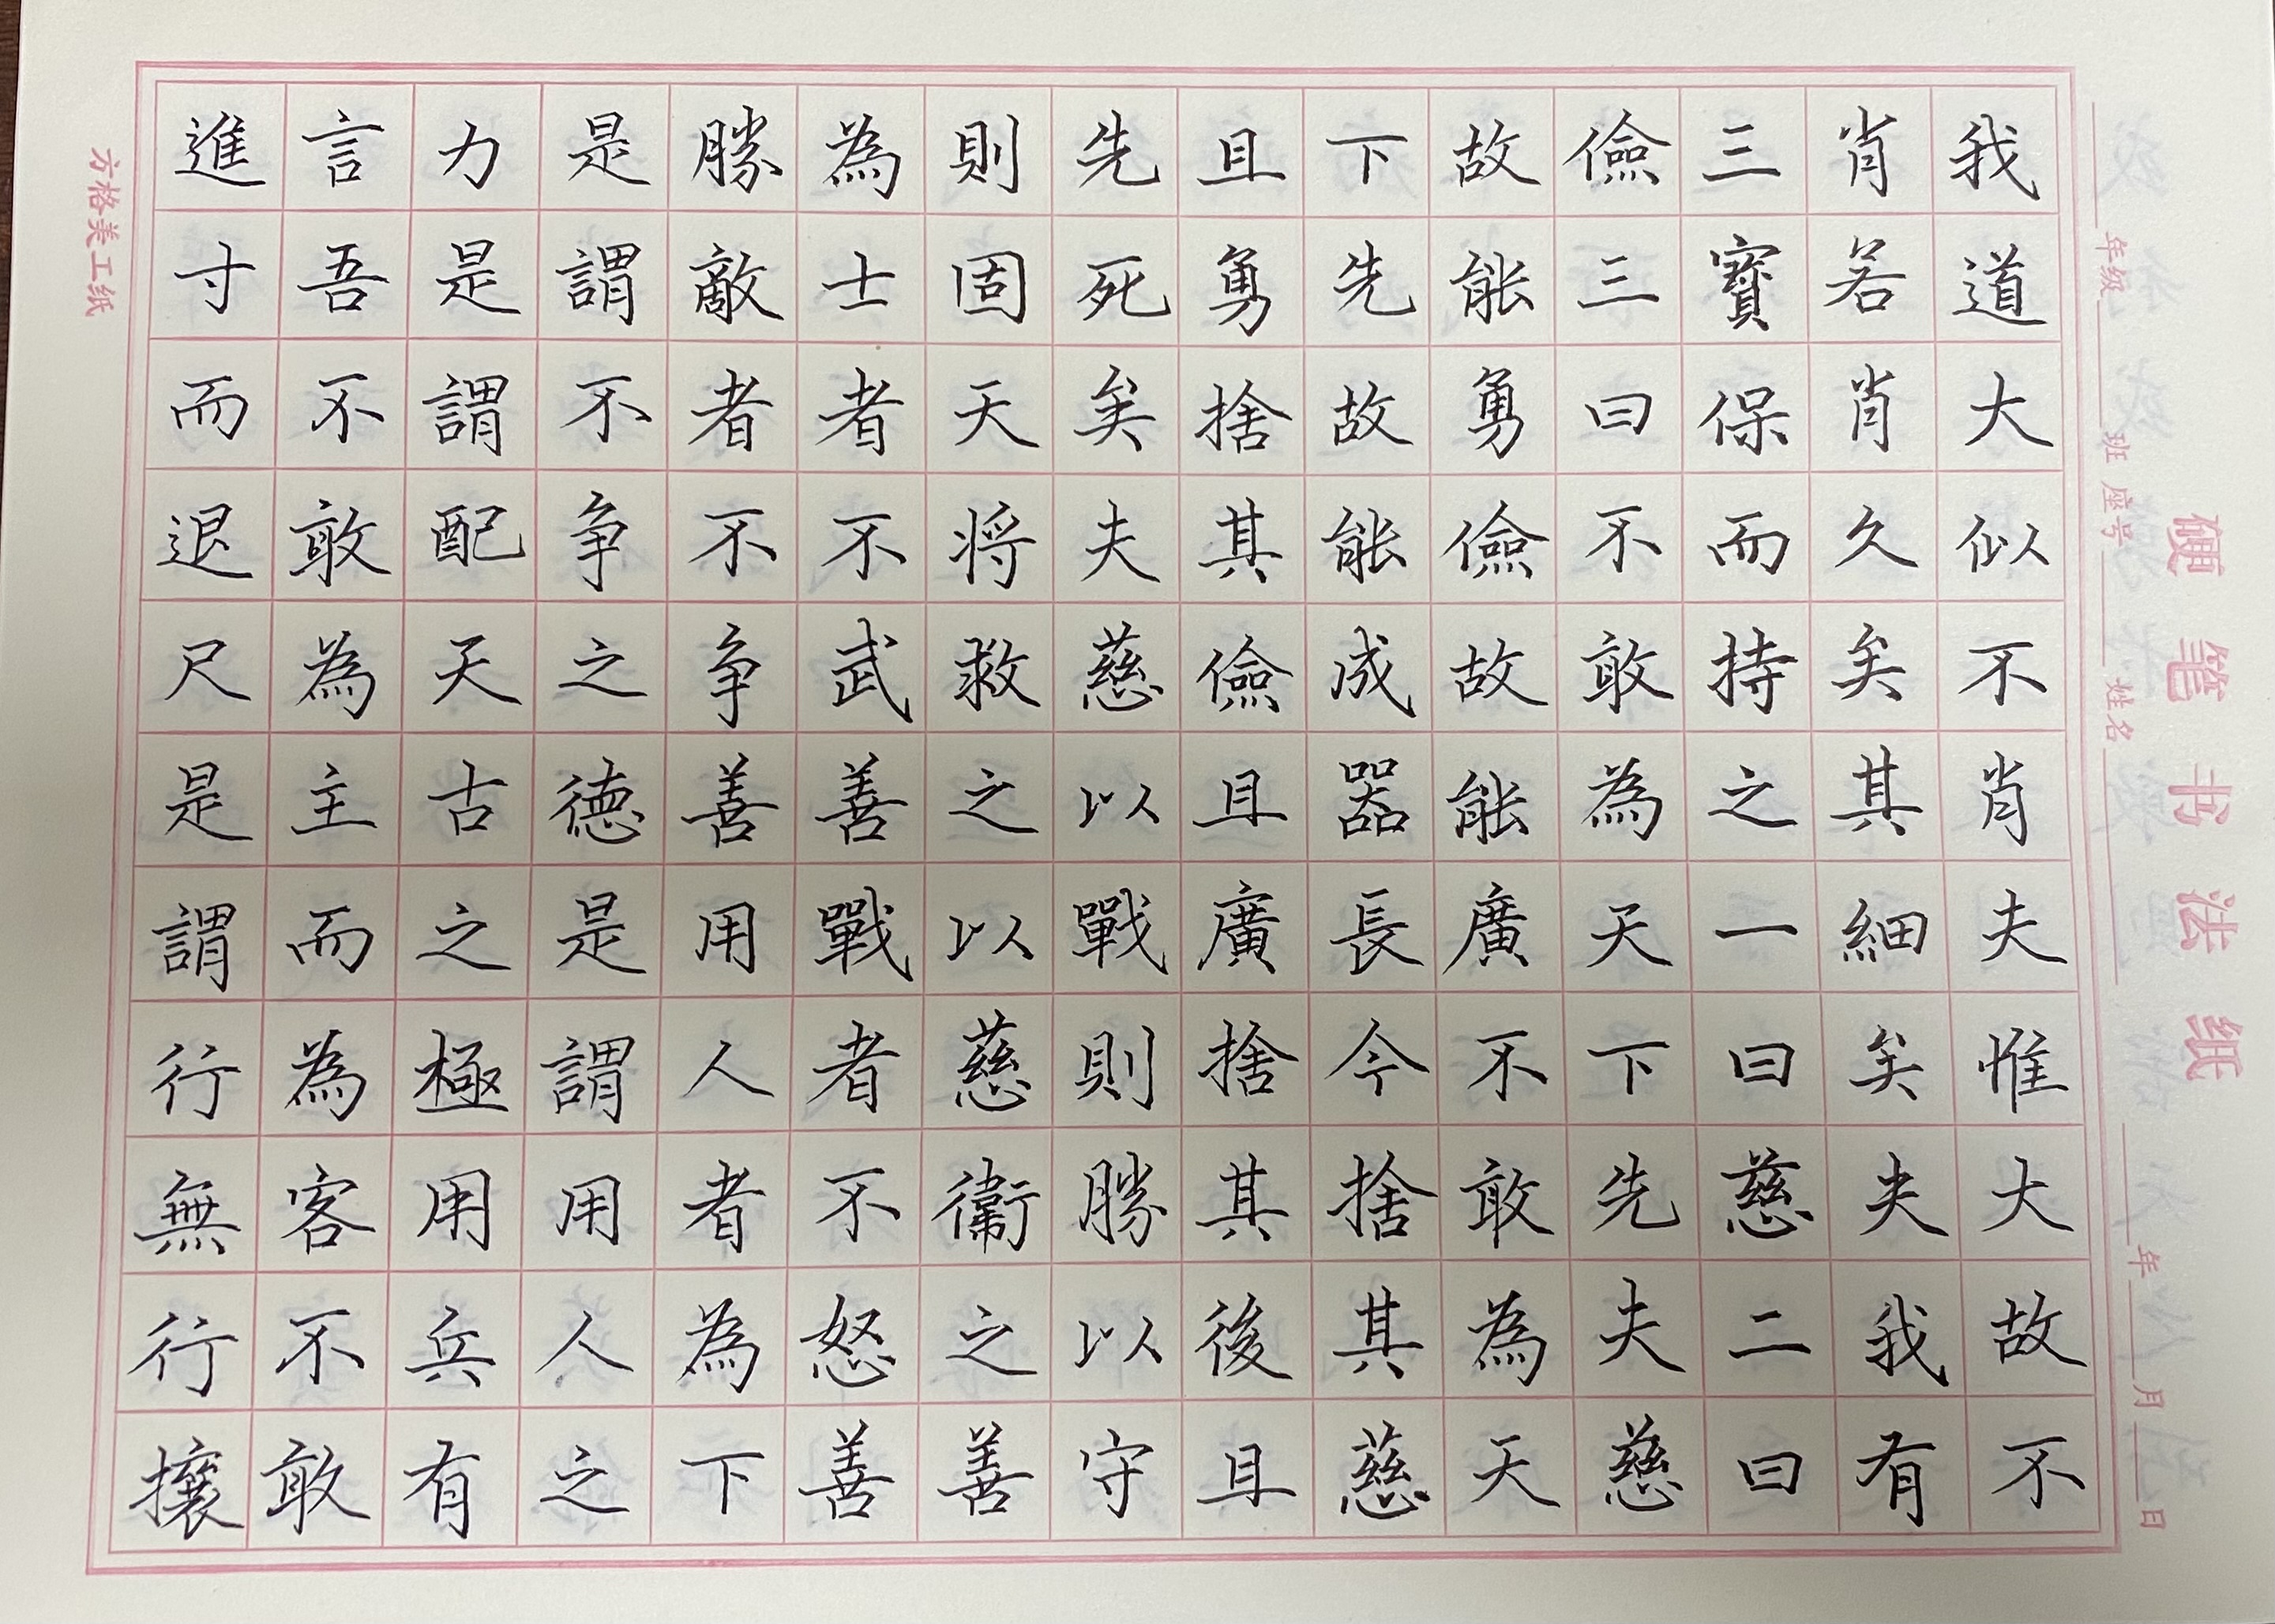 硬笔书法纸
年级 班 座号 姓名 年 月 日
我道大似不肖夫惟大故不
肖若肖久矣其細矣夫我有
三寶保而持之一曰慈二曰
儉三曰不敢為天下先夫慈
故能勇儉故能廣不敢為天
下先故能成器長今捨其慈
且勇捨其儉且廣捨其後且
先死矣夫慈以戰則勝以守
則固天将救之以慈衞之善
為士者不武善戰者不怒善
勝敵者不争善用人者為下
是謂不争之德是謂用人之
力是謂配天古之極用兵有
言吾不敢為主而為客不敢
進寸而退尺是謂行無行攘
方格美工纸